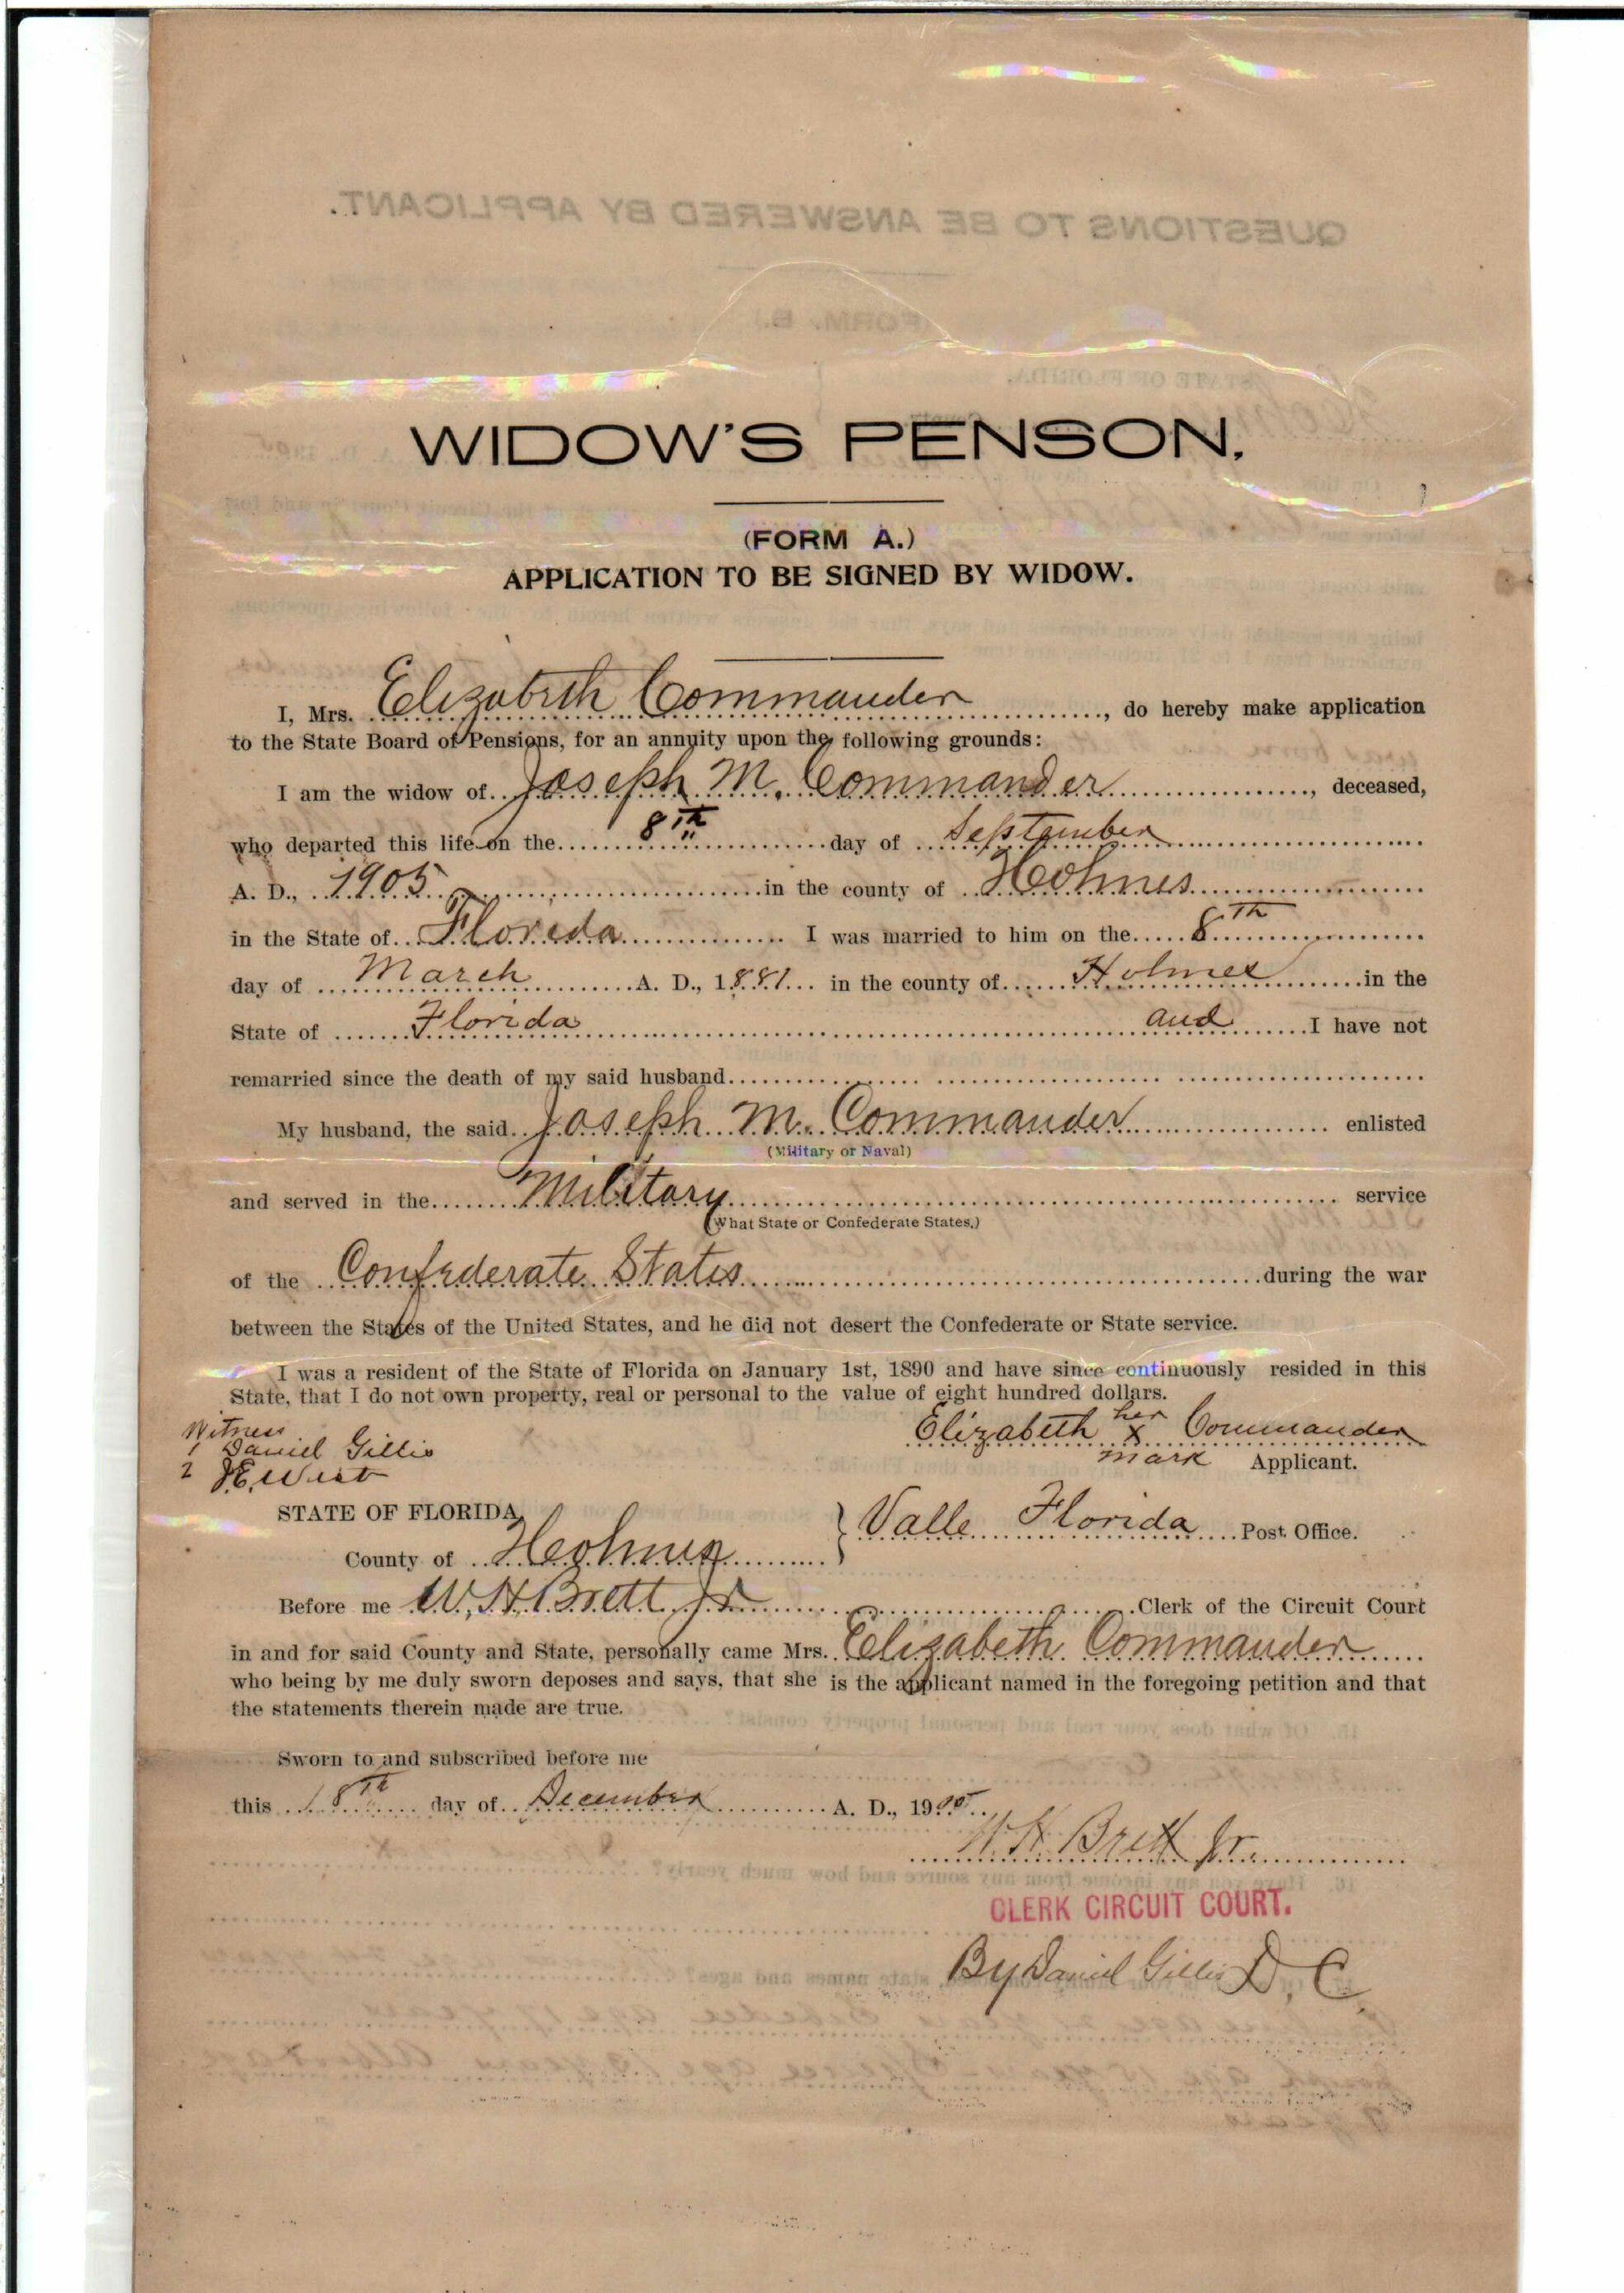 WIDOW'S PENSON.
(FORM A.)
APPLICATION TO BE SIGNED BY WIDOW.
I, Mrs. Elizabeth Commander, do hereby make application
to the State Board of Pensions, for an annuity upon the following grounds:
I am the widow of Joseph M. Commander, deceased,
who departed this life on the 8th day of September
A. D., 1905 in the county of Holmes
in the State of Florida I was married to him on the 8th
day of March A. D., 1881 in the county of Holmes in the
State of Florida and I have not
remarried since the death of my said husband
My husband, the said Joseph M. Commander enlisted
(Military or Naval)
and served in the Military service
(What State or Confederate States.)
of the Confederate States during the war
between the States of the United States, and he did not desert the Confederate or State service.
I was a resident of the State of Florida on January 1st, 1890 and have since continuously resided in this
State, that I do not own property, real or personal to the value of eight hundred dollars.
Witness
1 Daniel Gillis
2 J.E. West
Elizabeth her x mark Commander
Applicant.
STATE OF FLORIDA,
County of Holmes
Valle Florida Post Office.
Before me W. H. Brett Jr Clerk of the Circuit Court
in and for said County and State, personally came Mrs. Elizabeth Commander
who being by me duly sworn deposes and says, that she is the applicant named in the foregoing petition and that
the statements therein made are true.
Sworn to and subscribed before me
this 18th day of December A. D., 1905
W. H. Brett Jr.
CLERK CIRCUIT COURT.
By Daniel Gillis D. C.